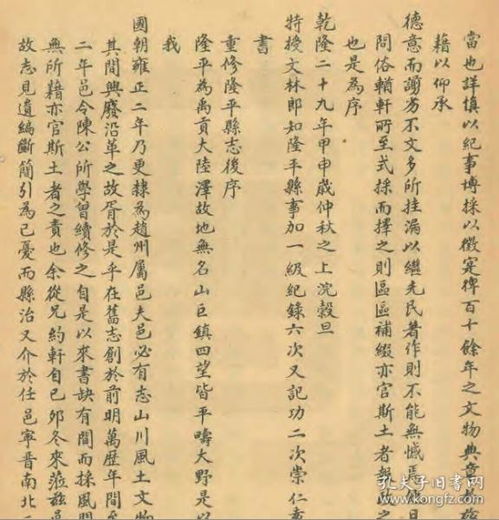 當也詳慎以紀事博採以徵寔俾百十餘年之文物典章
藉以仰承
德意而謭劣不文多所挂漏以繼先民著作則不能無憾焉他日
問俗輶軒所至式採而擇之則區區補綴亦官斯土者
也是為序
乾隆二十九年甲申歲仲秋之上浣穀旦
特授文林郎知隆平縣事加一級紀錄六次又記功二次崇仁
書
重修隆平縣志後序
隆平為禹貢大陸澤故地無名山巨鎮四望皆平疇大野是以
我
國朝雍正二年乃更隸為趙州屬邑夫邑必有志山川風土文物
其間興廢沿革之故胥於是乎在舊志創於前明萬歷年間
二年邑令陳公所學曾續修之自是以來書缺有間而採風問
無所藉亦官斯土者之責也余從兄約軒自己卯冬來涖茲邑
故志見遺編斷簡引為己憂而縣治又介於任邑寧晋南北
孔夫子旧书网
www.kongfz.com